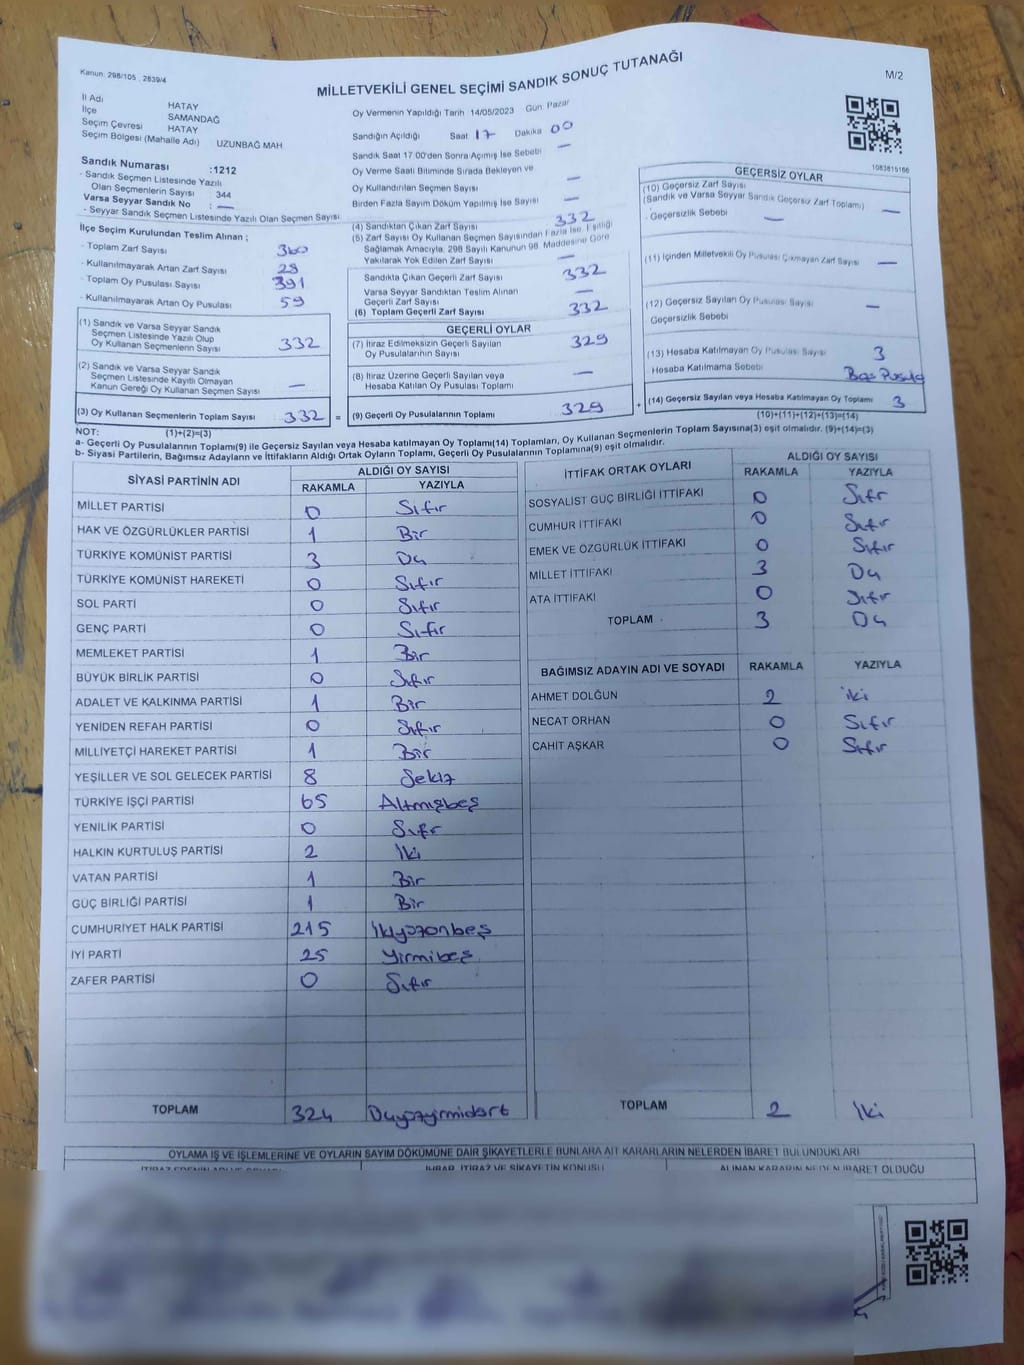 Kanun: 298/105 , 2839/4
MİLLETVEKİLİ GENEL SEÇİMİ SANDIK SONUÇ TUTANAĞI
M/2
İl Adı HATAY
İlçe SAMANDAĞ
Seçim Çevresi HATAY
Seçim Bölgesi (Mahalle Adı) UZUNBAĞ MAH
Sandık Numarası :1212
- Sandık Seçmen Listesinde Yazılı
Olan Seçmenlerin Sayısı : 344
Varsa Seyyar Sandık No : —
- Seyyar Sandık Seçmen Listesinde Yazılı Olan Seçmen Sayısı
İlçe Seçim Kurulundan Teslim Alınan ;
- Toplam Zarf Sayısı 360
- Kullanılmayarak Artan Zarf Sayısı 29
- Toplam Oy Pusulası Sayısı 391
- Kullanılmayarak Artan Oy Pusulası 59
(1) Sandık ve Varsa Seyyar Sandık
Seçmen Listesinde Yazılı Olup
Oy Kullanan Seçmenlerin Sayısı 332
(2) Sandık ve Varsa Seyyar Sandık
Seçmen Listesinde Kayıtlı Olmayan
Kanun Gereği Oy Kullanan Seçmen Sayısı —
(3) Oy Kullanan Seçmenlerin Toplam Sayısı 332 =
Oy Vermenin Yapıldığı Tarih 14/05/2023 Gün: Pazar
Sandığın Açıldığı Saat 17 Dakika 00
Sandık Saat 17:00'den Sonra Açımış İse Sebebi —
Oy Verme Saati Bitiminde Sırada Bekleyen ve
Oy Kullandırılan Seçmen Sayısı —
Birden Fazla Sayım Döküm Yapılmış İse Sayısı —
(4) Sandıktan Çıkan Zarf Sayısı 332
(5) Zarf Sayısı Oy Kullanan Seçmen Sayısından Fazla İse, Eşitliği
Sağlamak Amacıyla, 298 Sayılı Kanunun 98. Maddesine Göre
Yakılarak Yok Edilen Zarf Sayısı —
Sandıkta Çıkan Geçerli Zarf Sayısı 332
Varsa Seyyar Sandıktan Teslim Alınan
Geçerli Zarf Sayısı —
(6) Toplam Geçerli Zarf Sayısı 332
GEÇERLİ OYLAR
(7) İtiraz Edilmeksizin Geçerli Sayılan
Oy Pusulalarının Sayısı 329
(8) İtiraz Üzerine Geçerli Sayılan veya
Hesaba Katılan Oy Pusulası Toplamı —
(9) Geçerli Oy Pusulalarının Toplamı 329 +
1083815166
GEÇERSİZ OYLAR
(10) Geçersiz Zarf Sayısı
(Sandık ve Varsa Seyyar Sandık Geçersiz Zarf Toplamı) —
- Geçersizlik Sebebi —
(11) İçinden Milletvekili Oy Pusulası Çıkmayan Zarf Sayısı —
(12) Geçersiz Sayılan Oy Pusulası Sayısı —
Geçersizlik Sebebi
(13) Hesaba Katılmayan Oy Pusulası Sayısı 3
Hesaba Katılmama Sebebi Boş Pusula
(14) Geçersiz Sayılan veya Hesaba Katılmayan Oy Toplamı 3
(10)+(11)+(12)+(13)=(14)
NOT: (1)+(2)=(3)
a- Geçerli Oy Pusulalarının Toplamı(9) ile Geçersiz Sayılan veya Hesaba katılmayan Oy Toplamı(14) Toplamları, Oy Kullanan Seçmenlerin Toplam Sayısına(3) eşit olmalıdır. (9)+(14)=(3)
b- Siyasi Partilerin, Bağımsız Adayların ve İttifakların Aldığı Ortak Oyların Toplamı, Geçerli Oy Pusulalarının Toplamına(9) eşit olmalıdır.
SİYASİ PARTİNİN ADI ALDIĞI OY SAYISI
RAKAMLA YAZIYLA
MİLLET PARTİSİ 0 Sıfır
HAK VE ÖZGÜRLÜKLER PARTİSİ 1 Bir
TÜRKİYE KOMÜNİST PARTİSİ 3 Üç
TÜRKİYE KOMÜNİST HAREKETİ 0 Sıfır
SOL PARTİ 0 Sıfır
GENÇ PARTİ 0 Sıfır
MEMLEKET PARTİSİ 1 Bir
BÜYÜK BİRLİK PARTİSİ 0 Sıfır
ADALET VE KALKINMA PARTİSİ 1 Bir
YENİDEN REFAH PARTİSİ 0 Sıfır
MİLLİYETÇİ HAREKET PARTİSİ 1 Bir
YEŞİLLER VE SOL GELECEK PARTİSİ 8 Sekiz
TÜRKİYE İŞÇİ PARTİSİ 65 Altmışbeş
YENİLİK PARTİSİ 0 Sıfır
HALKIN KURTULUŞ PARTİSİ 2 İki
VATAN PARTİSİ 1 Bir
GÜÇ BİRLİĞİ PARTİSİ 1 Bir
CUMHURİYET HALK PARTİSİ 215 İkiyüzonbeş
İYİ PARTİ 25 Yirmibeş
ZAFER PARTİSİ 0 Sıfır
TOPLAM 324 Üçyüzyirmidört
İTTİFAK ORTAK OYLARI ALDIĞI OY SAYISI
RAKAMLA YAZIYLA
SOSYALİST GÜÇ BİRLİĞİ İTTİFAKI 0 Sıfır
CUMHUR İTTİFAKI 0 Sıfır
EMEK VE ÖZGÜRLÜK İTTİFAKI 0 Sıfır
MİLLET İTTİFAKI 3 Üç
ATA İTTİFAKI 0 Sıfır
TOPLAM 3 Üç
BAĞIMSIZ ADAYIN ADI VE SOYADI RAKAMLA YAZIYLA
AHMET DOLĞUN 2 iki
NECAT ORHAN 0 Sıfır
CAHİT AŞKAR 0 Sıfır
TOPLAM 2 İki
OYLAMA İŞ VE İŞLEMLERİNE VE OYLARIN SAYIM DÖKÜMÜNE DAİR ŞİKAYETLERLE BUNLARA AİT KARARLARIN NELERDEN İBARET BULUNDUKLARI
İHBAR, İTİRAZ VE ŞİKAYETİN KONUSU ALINAN KARARIN NEDEN İBARET OLDUĞU